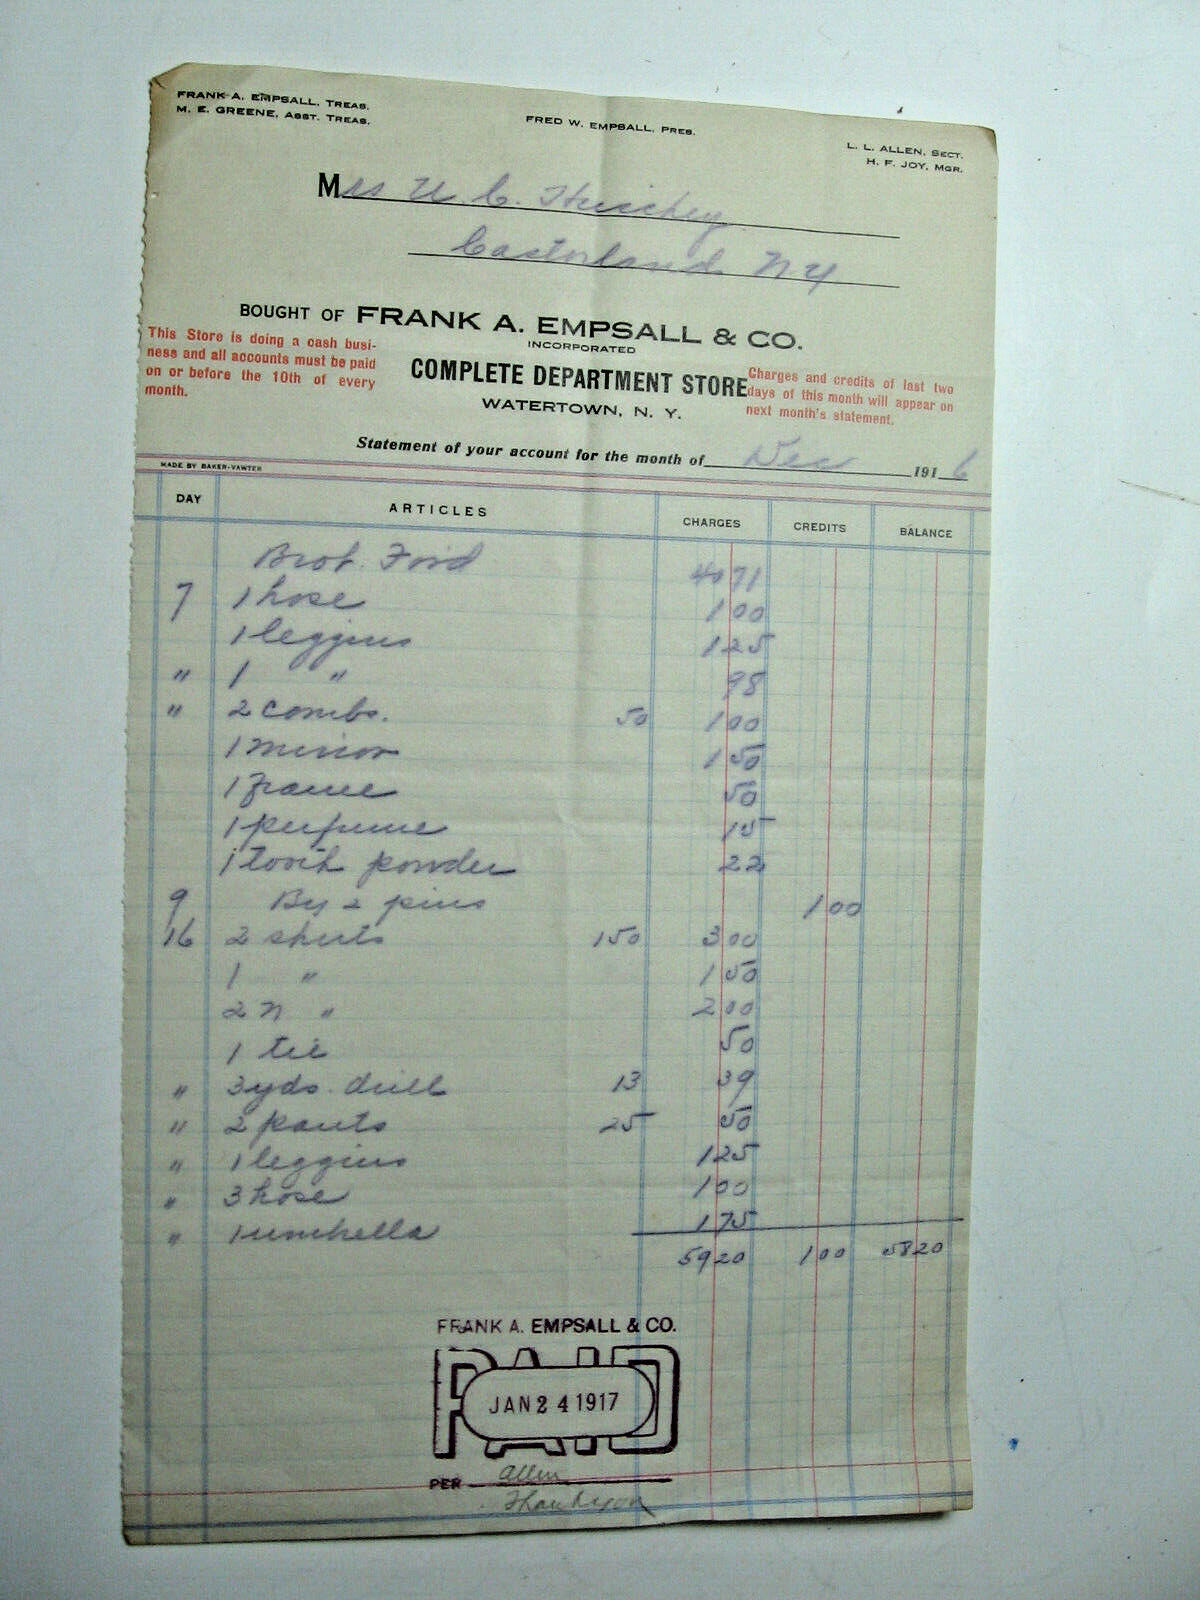 FRANK A. EMPSALL, TREAS.
M. E. GREENE, ASST. TREAS.
FRED W. EMPSALL, PRES.
L. L. ALLEN, SECT.
H. F. JOY, MGR.
Mrs U. C.
Castorland N Y
BOUGHT OF FRANK A. EMPSALL & CO.
INCORPORATED
COMPLETE DEPARTMENT STORE
WATERTOWN, N. Y.
This Store is doing a cash busi-
ness and all accounts must be paid
on or before the 10th of every
month.
Charges and credits of last two
days of this month will appear on
next month's statement.
Statement of your account for the month of Dec 1916
MADE BY BAKER-VAWTER
DAY ARTICLES CHARGES CREDITS BALANCE
Brot. Ford 4071
7 1 hose 100
1 leggins 125
" 1 " 98
" 2 combs. 50 100
1 mirror 150
1 frame 50
1 perfume 15
1 tooth powder 22
9 By 2 pins 100
16 2 shirts 150 300
1 " 150
2 N " 200
1 tie 50
" 3 yds. drill 13 39
" 2 pants 25 50
" 1 leggins 125
" 3 hose 100
" 1 umbrella 175
5920 100 5820
FRANK A. EMPSALL & CO.
PAID
JAN 24 1917
PER Allen
Thank you